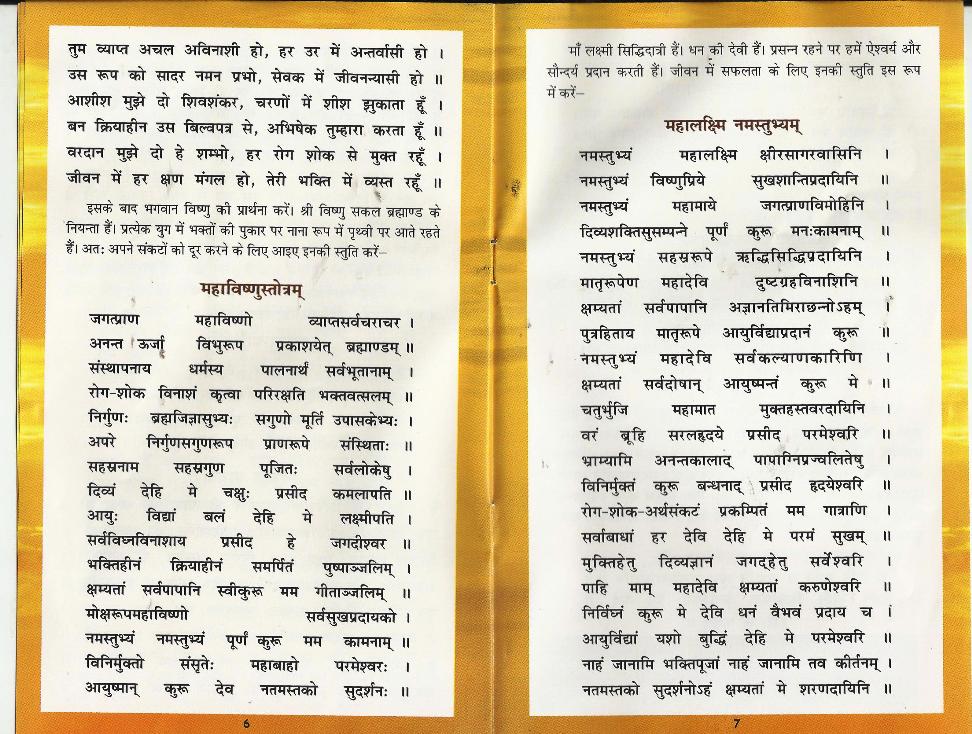 तुम व्याप्त अचल अविनाशी हो, हर उर में अन्तर्वासी हो ।
उस रूप को सादर नमन प्रभो, सेवक में जीवनन्यासी हो ॥
आशीश मुझे दो शिवशंकर, चरणों में शीश झुकाता हूँ ।
बन क्रियाहीन उस बिल्वपत्र से, अभिषेक तुम्हारा करता हूँ ॥
वरदान मुझे दो हे शम्भो, हर रोग शोक से मुक्त रहूँ ।
जीवन में हर क्षण मंगल हो, तेरी भक्ति में व्यस्त रहूँ ॥
इसके बाद भगवान विष्णु की प्रार्थना करें। श्री विष्णु सकल ब्रह्माण्ड के
नियन्ता हैं। प्रत्येक युग में भक्तों की पुकार पर नाना रूप में पृथ्वी पर आते रहते
हैं। अतः अपने संकटों को दूर करने के लिए आइए इनकी स्तुति करें–
महाविष्णुस्तोत्रम्
जगत्प्राण महाविष्णो व्याप्तसर्वचराचर ।
अनन्त ऊर्जा विभुरूप प्रकाशयेत् ब्रह्माण्डम् ॥
संस्थापनाय धर्मस्य पालनार्थ सर्वभूतानाम् ।
रोग-शोक विनाशं कृत्वा परिरक्षति भक्तवत्सलम् ॥
निर्गुणः ब्रह्मजिज्ञासुभ्यः सगुणो मूर्ति उपासकेभ्यः ।
अपरे निर्गुणसगुणरूप प्राणरूपे संस्थिताः ॥
सहस्रनाम सहस्रगुण पूजितः सर्वलोकेषु ।
दिव्यं देहि मे चक्षुः प्रसीद कमलापति ॥
आयुः विद्यां बलं देहि मे लक्ष्मीपति ।
सर्वविघ्नविनाशाय प्रसीद हे जगदीश्वर ॥
भक्तिहीनं क्रियाहीनं समर्पितं पुष्पाञ्जलिम् ।
क्षम्यतां सर्वपापानि स्वीकुरू मम गीताञ्जलिम् ॥
मोक्षरूपमहाविष्णो सर्वसुखप्रदायको ।
नमस्तुभ्यं नमस्तुभ्यं पूर्णं कुरू मम कामनाम् ॥
विनिर्मुक्तो संसृतेः महाबाहो परमेश्वरः ।
आयुष्मान् कुरू देव नतमस्तको सुदर्शनः ॥
6
माँ लक्ष्मी सिद्धिदात्री हैं। धन की देवी हैं। प्रसन्न रहने पर हमें ऐश्वर्य और
सौन्दर्य प्रदान करती हैं। जीवन में सफलता के लिए इनकी स्तुति इस रूप
में करें–
महालक्ष्मि नमस्तुभ्यम्
नमस्तुभ्यं महालक्ष्मि क्षीरसागरवासिनि ।
नमस्तुभ्यं विष्णुप्रिये सुखशान्तिप्रदायिनि ॥
नमस्तुभ्यं महामाये जगत्प्राणविमोहिनि ।
दिव्यशक्तिसुसम्पन्ने पूर्णं कुरू मनःकामनाम् ॥
नमस्तुभ्यं सहस्ररूपे ऋद्धिसिद्धिप्रदायिनि ।
मातृरूपेण महादेवि दुष्टग्रहविनाशिनि ॥
क्षम्यतां सर्वपापानि अज्ञानतिमिराछन्नोऽहम् ।
पुत्रहिताय मातृरूपे आयुर्विद्याप्रदानं कुरू ॥
नमस्तुभ्यं महादेवि सर्वकल्याणकारिणि ।
क्षम्यतां सर्वदोषान् आयुष्मन्तं कुरू मे ॥
चतुर्भुजि महामात मुक्तहस्तवरदायिनि ।
वरं ब्रूहि सरलहृदये प्रसीद परमेश्वरि ॥
भ्राम्यामि अनन्तकालाद् पापाग्निप्रज्वलितेषु ।
विनिर्मुक्तं कुरू बन्धनाद् प्रसीद हृदयेश्वरि ॥
रोग-शोक-अर्थसंकटं प्रकम्पितं मम गात्राणि ।
सर्वाबाधां हर देवि देहि मे परमं सुखम् ॥
मुक्तिहेतु दिव्यज्ञानं जगद्हेतु सर्वेश्वरि ।
पाहि माम् महादेवि क्षम्यतां करुणेश्वरि ॥
निर्विघ्नं कुरू मे देवि धनं वैभवं प्रदाय च ।
आयुर्विद्यां यशो बुद्धिं देहि मे परमेश्वरि ॥
नाहं जानामि भक्तिपूजां नाहं जानामि तव कीर्तनम् ।
नतमस्तको सुदर्शनोऽहं क्षम्यतां मे शरणदायिनि ॥
7